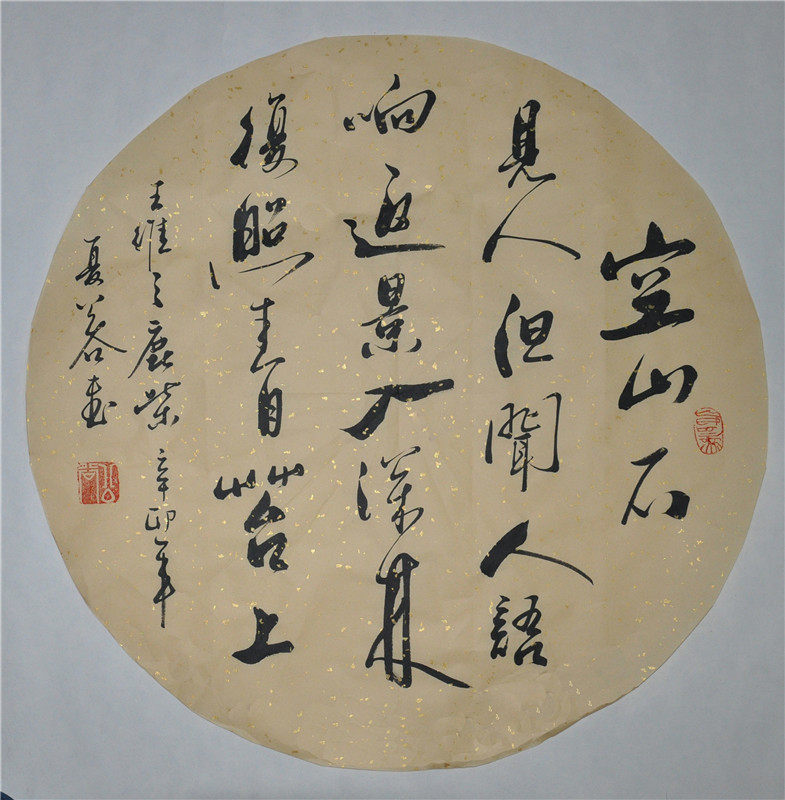 空山不
見人但聞人語
响返景入深林
復照青苔上
王維之鹿柴 辛卯年
夏